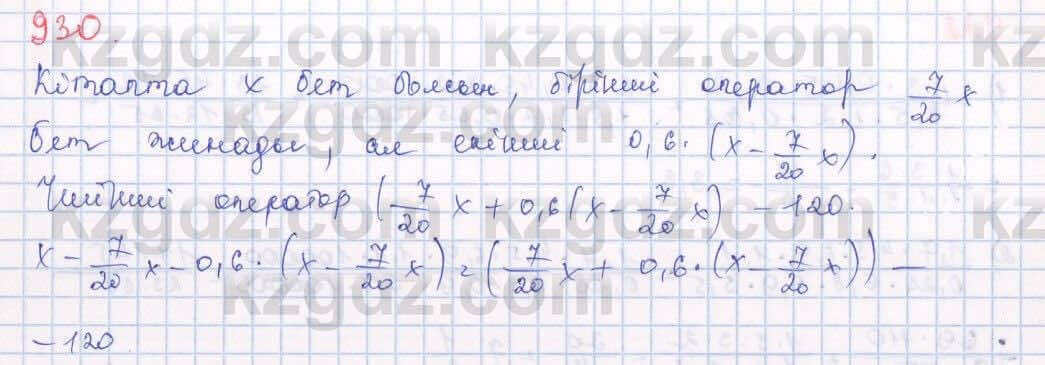 930.
Кітапта x бет болсын, бірінші оператор 7/20 x
бет жинады, ал екінші 0,6·(x - 7/20 x).
Үшінші оператор (7/20 x + 0,6(x - 7/20 x) - 120.
x - 7/20 x - 0,6·(x - 7/20 x) = (7/20 x + 0,6·(x - 7/20 x)) -
- 120
kzgdz.com kzgdz.com
kzgdz.com kzgdz.com
kzgdz.com kzgdz.com
kzgdz.com